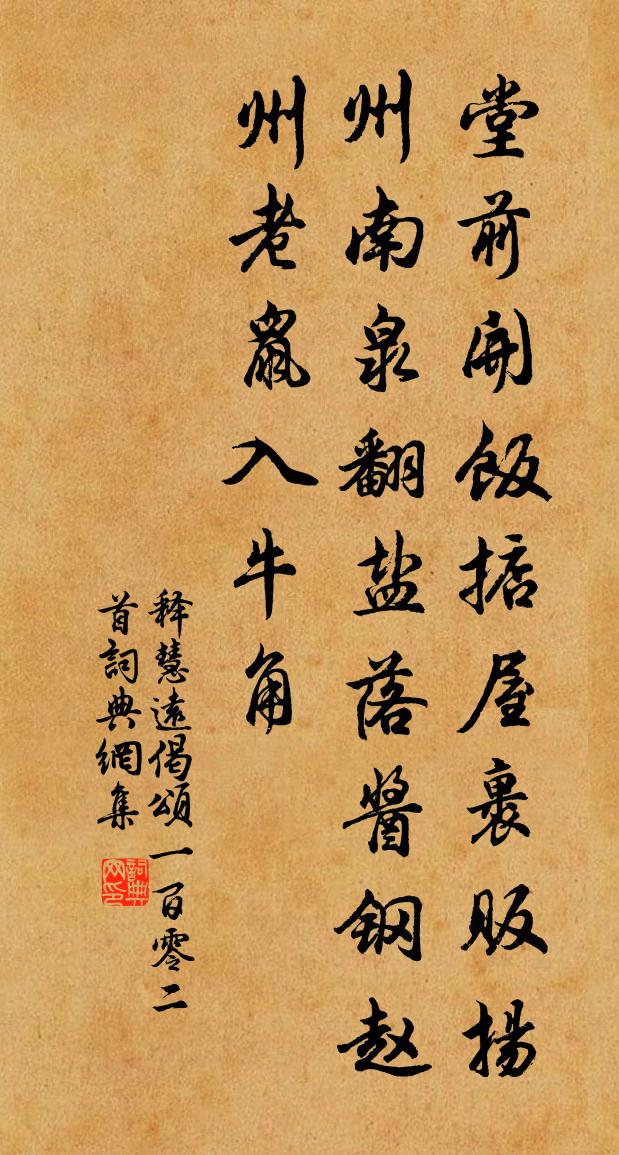 堂前開飯掂屋裹販揚
州南泉翻盐落醬钢赵
州老鼠入牛角
释慧遠偈頌一百零二
首詞典網集
詞典網印